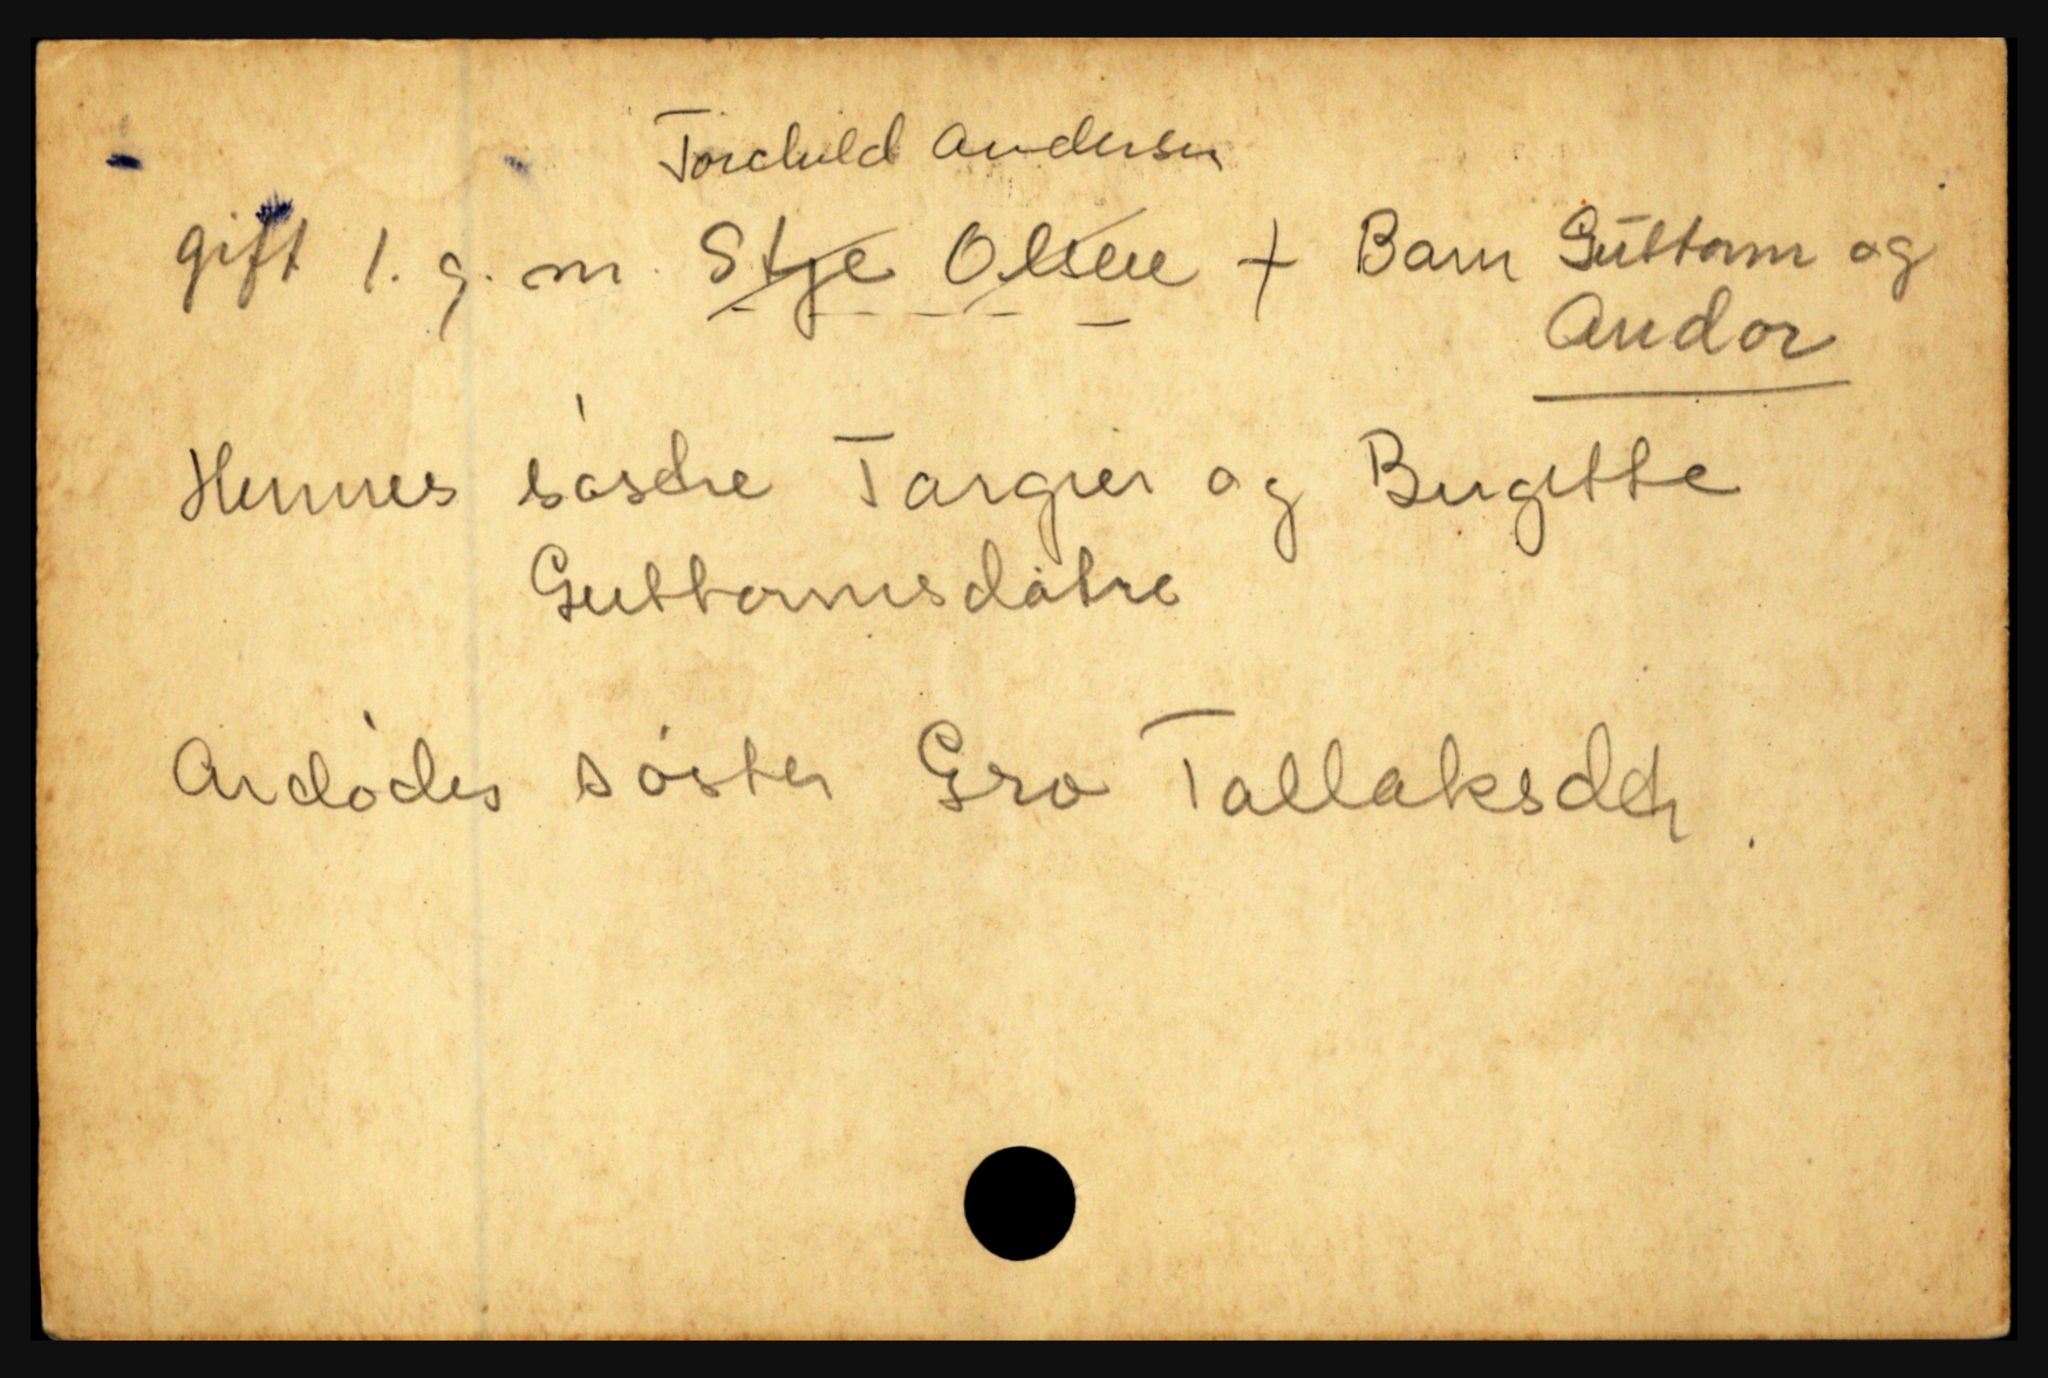 Torchild Andersen
gift 1. g. m. Stje Olsen + Barn Guttorm og
Andor
Hennes søstre Targier og Birgitte
Guttormsdøtre
Avdødes søster Gro Tallaksdtr.